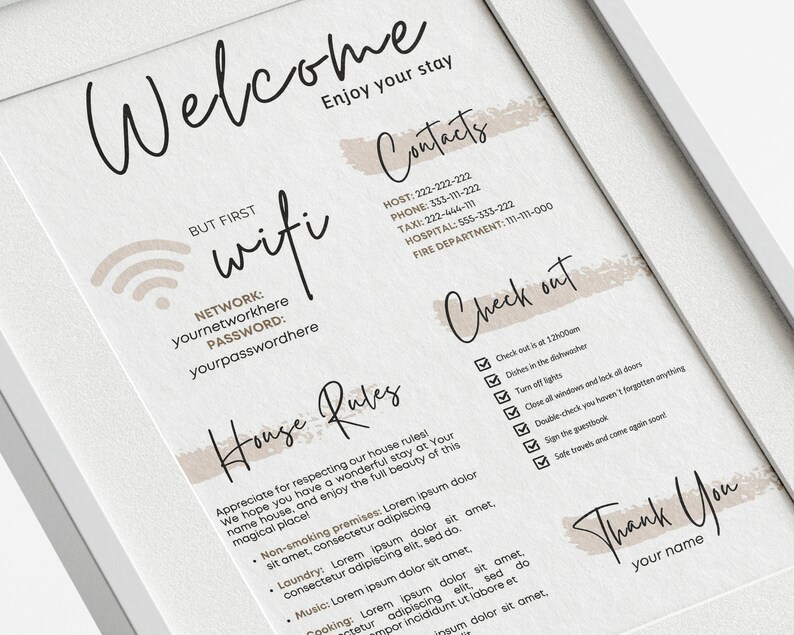 Welcome
Enjoy your stay
BUT FIRST
wifi
NETWORK:
yournetworkhere
PASSWORD:
yourpasswordhere
Contacts
HOST: 222-222-222
PHONE: 333-111-222
TAXI: 222-444-111
HOSPITAL: 555-333-222
FIRE DEPARTMENT: 111-111-000
Check out
Check out is at 12h00am
Dishes in the dishwasher
Turn off lights
Close all windows and lock all doors
Double-check you haven´t forgotten anything
Sign the guestbook
Safe travels and come again soon!
House Rules
Appreciate for respecting our house rules!
We hope you have a wonderful stay at Your
name house, and enjoy the full beauty of this
magical place!
• Non-smoking premises: Lorem ipsum dolor
sit amet, consectetur adipiscing
• Laundry: Lorem ipsum dolor sit amet,
consectetur adipiscing elit, sed do.
• Music: Lorem ipsum dolor sit amet,
• Cooking: Lorem ipsum dolor sit amet,
consectetur adipiscing elit, sed do
tempor incididunt ut labore et
Lorem ipsum dolor sit amet,
Thank You
your name